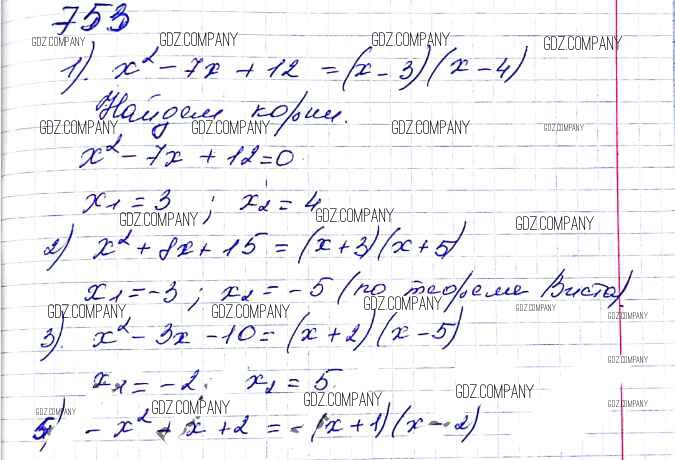 753
GDZ.COMPANY GDZ.COMPANY GDZ.COMPANY GDZ.COMPANY
1). x² - 7x + 12 = (x - 3)(x - 4)
Найдем корни.
GDZ.COMPANY GDZ.COMPANY GDZ.COMPANY GDZ.COMPANY
x² - 7x + 12 = 0
x1 = 3 ; x2 = 4
GDZ.COMPANY GDZ.COMPANY GDZ.COMPANY
2) x² + 8x + 15 = (x + 3)(x + 5)
x1 = -3 ; x2 = -5 (по теореме Виета)
GDZ.COMPANY GDZ.COMPANY GDZ.COMPANY GDZ.COMPANY GDZ.COMPANY
3). x² - 3x - 10 = (x + 2)(x - 5)
GDZ.COMPANY
x1 = -2 ; x2 = 5
GDZ.COMPANY GDZ.COMPANY GDZ.COMPANY GDZ.COMPANY GDZ.COMPANY
- x² + x + 2 = - (x + 1)(x - 2)